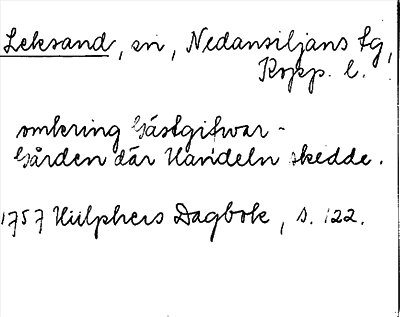 Leksand, sn, Nedansiljans fg,
Kopp. l.
omkring Gästgifwar-
Gården där Handeln skedde.
1757 Hülphers Dagbok, s. 122.